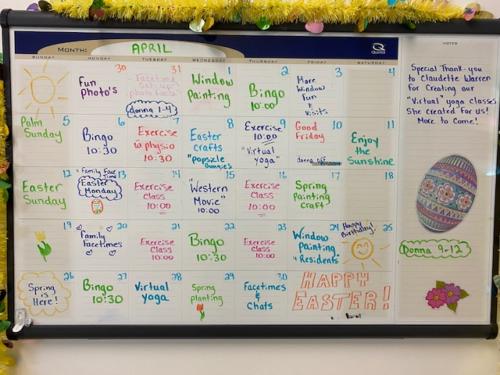 MONTH: APRIL
Quartet
SUNDAY MONDAY TUESDAY WEDNESDAY THURSDAY FRIDAY SATURDAY
NOTES
30 31 1 2 3 4
Fun
photo's
Donna 1-4
Window
Painting
Bingo
10:00
More
Window
Fun
&
Visits
5 6 7 8 9 10 11
Palm
Sunday
Bingo
10:30
Exercise
10:30
Easter
crafts
"popsicle
Exercise
9:00
"Virtual
yoga"
Good
Friday
Enjoy
the
Sunshine
12 13 14 15 16 17 18
Easter
Sunday
Easter
Monday
Exercise
Class
10:00
"Western
Movie"
10:00
Exercise
Class
10:00
Spring
Painting
craft
19 20 21 22 23 24 25
Family
facetimes
Exercise
Class
10:00
Bingo
10:30
Exercise
Class
10:00
Window
Painting
"Residents
Happy
Birthday!
26 27 28 29 30
Spring
is
Here!
Bingo
10:30
Virtual
yoga
Spring
planting
Facetimes
&
Chats
HAPPY
EASTER!
Special Thank-you
to Claudette Warren
For Creating our
"Virtual" yoga classes
She created For Us!
More to Come!
Donna 9-12